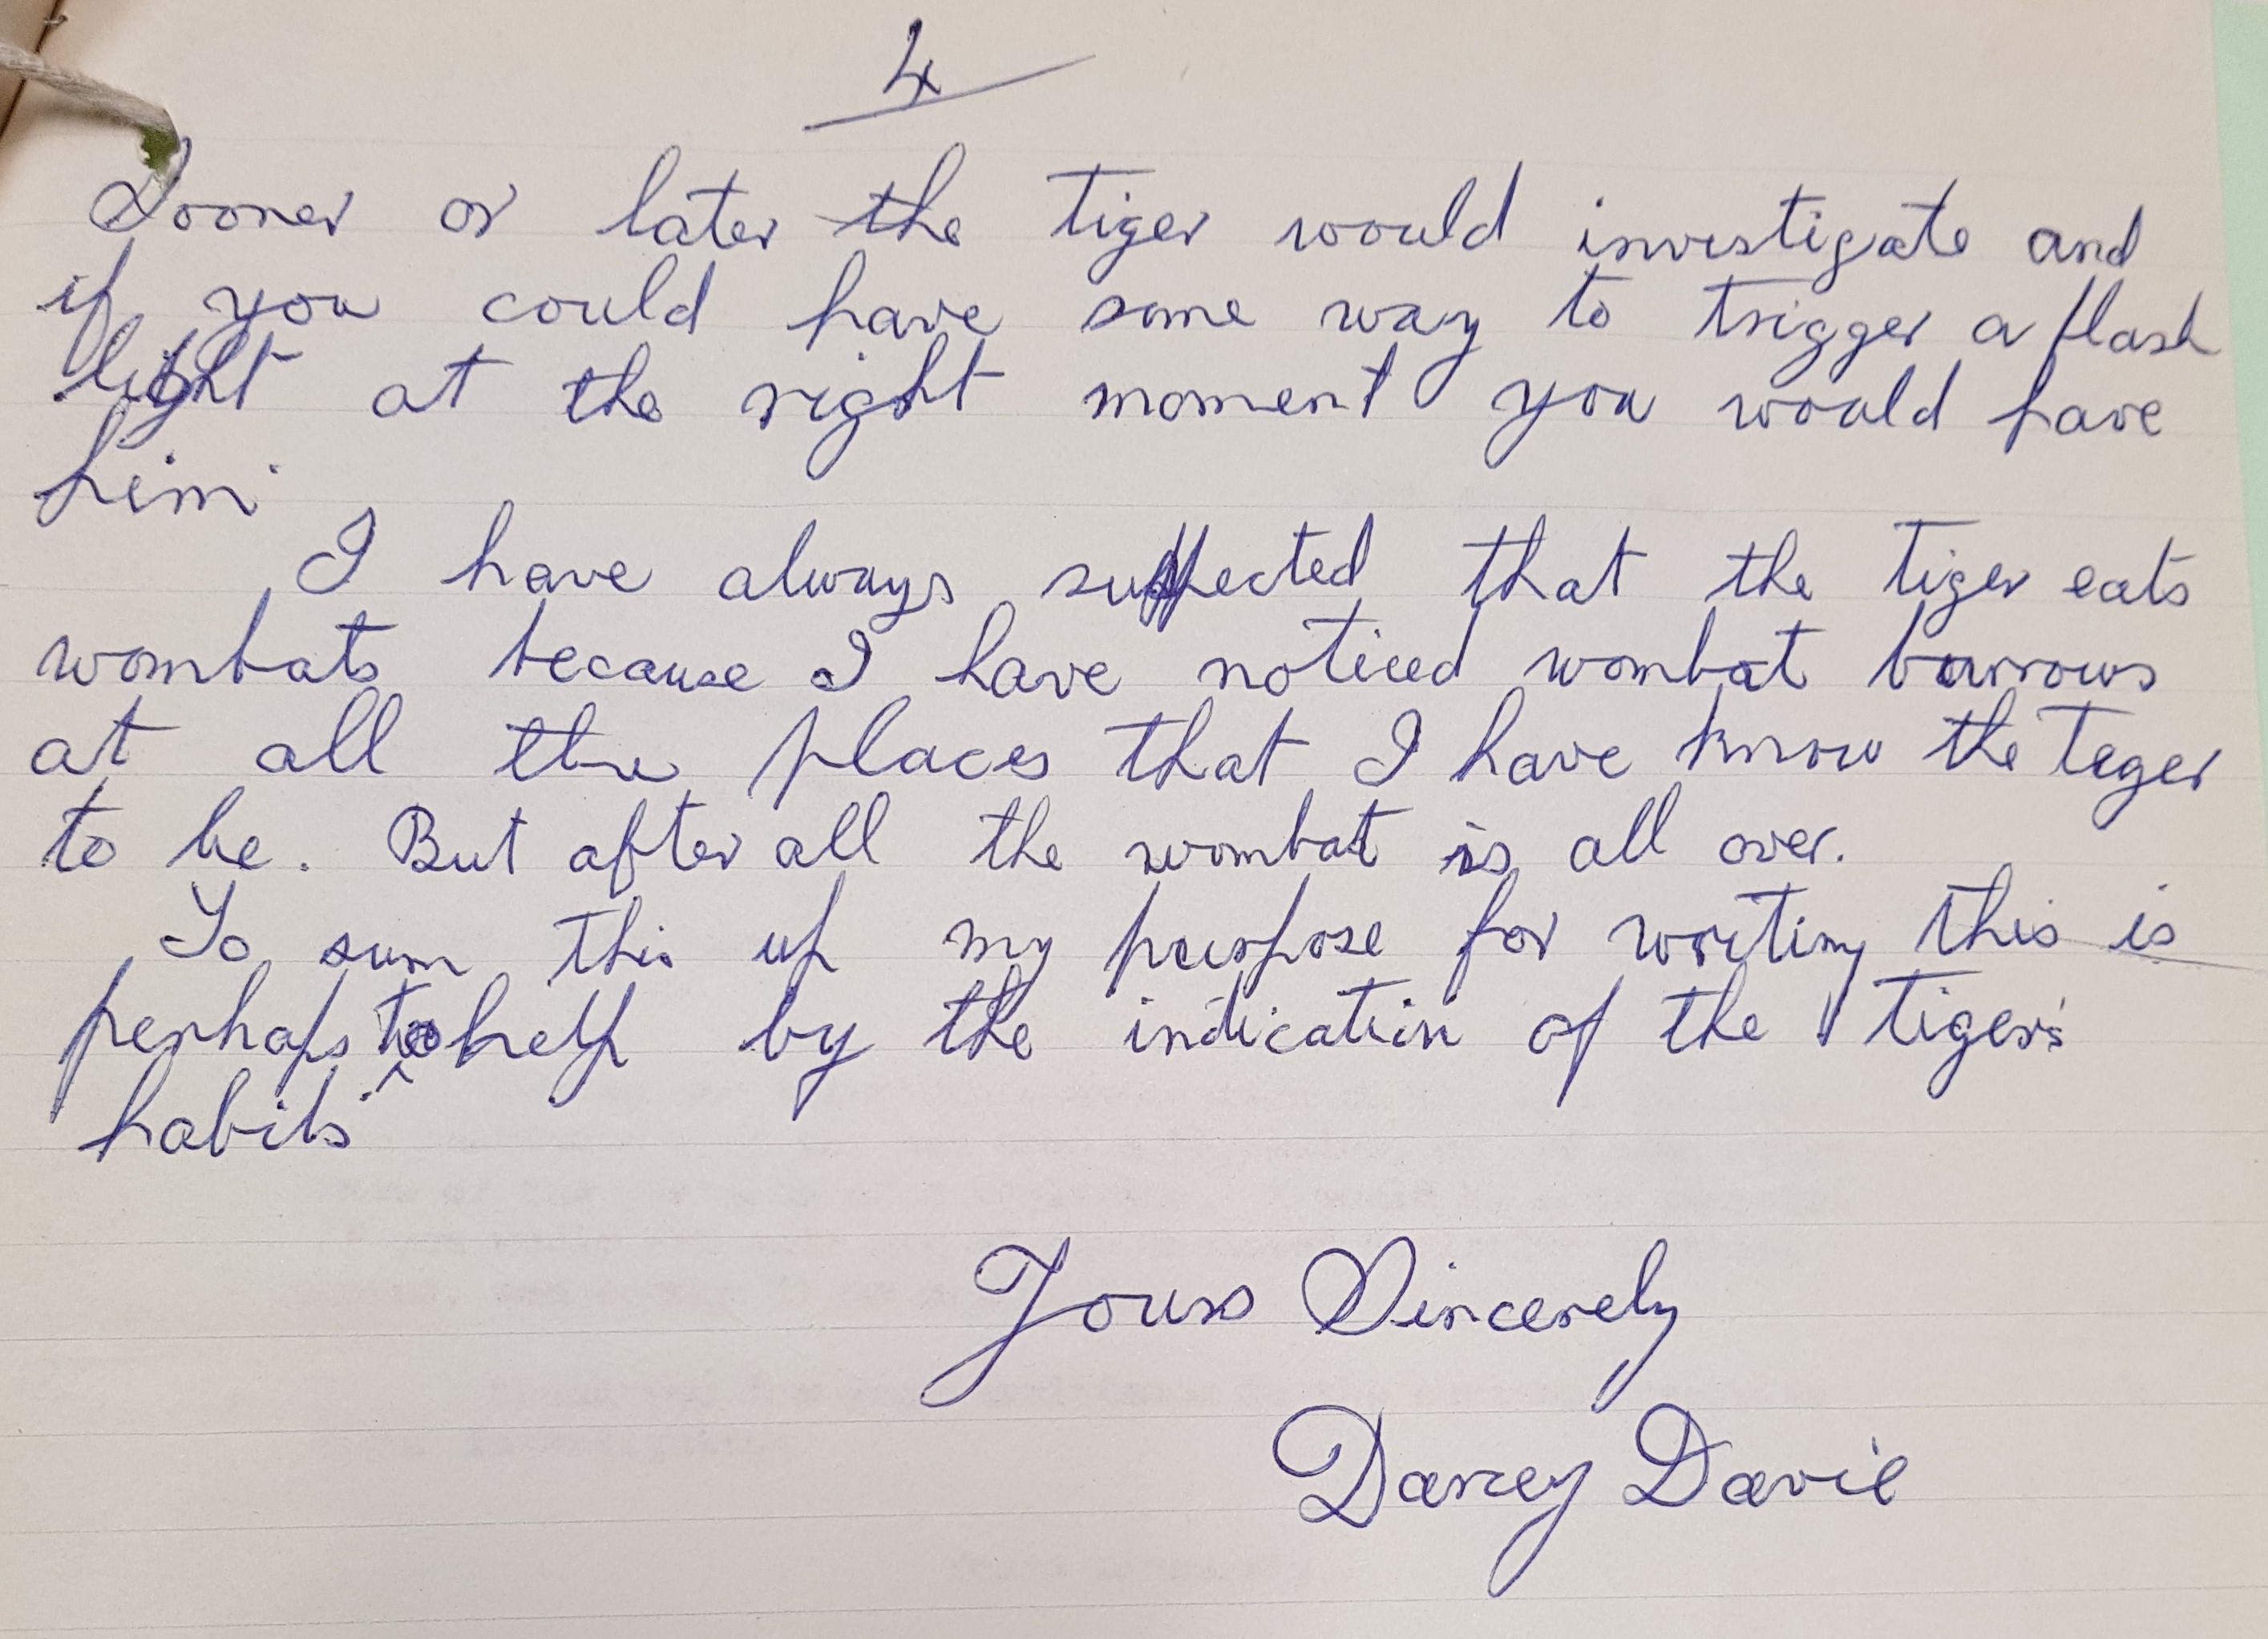 4
Sooner or later the tiger would investigate and
if you could have some way to trigger a flash
light at the right moment you would have
him.
I have always suspected that the tiger eats
wombats because I have noticed wombat burrows
at all the places that I have know the tiger
to be. But after all the wombat is all over.
To sum this up my purpose for writing this is
perhaps to help by the indication of the tiger's
habits.
Yours Sincerely
Darcey Davie